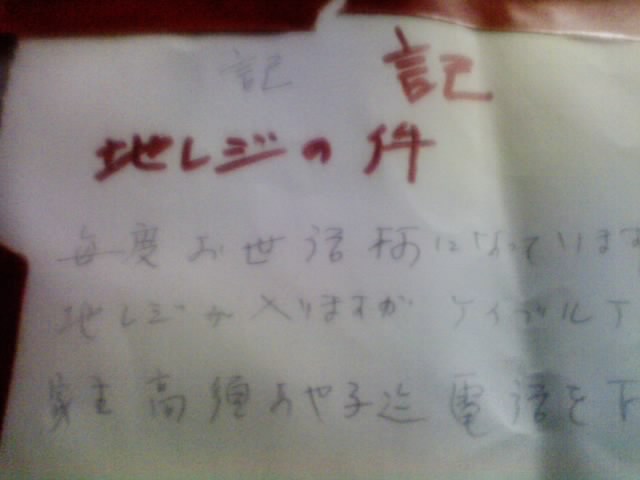 記 記
地レジの件
毎度お世話様になっています
地レジが入りますがケイブルT
家主高須あや子迄電話を下